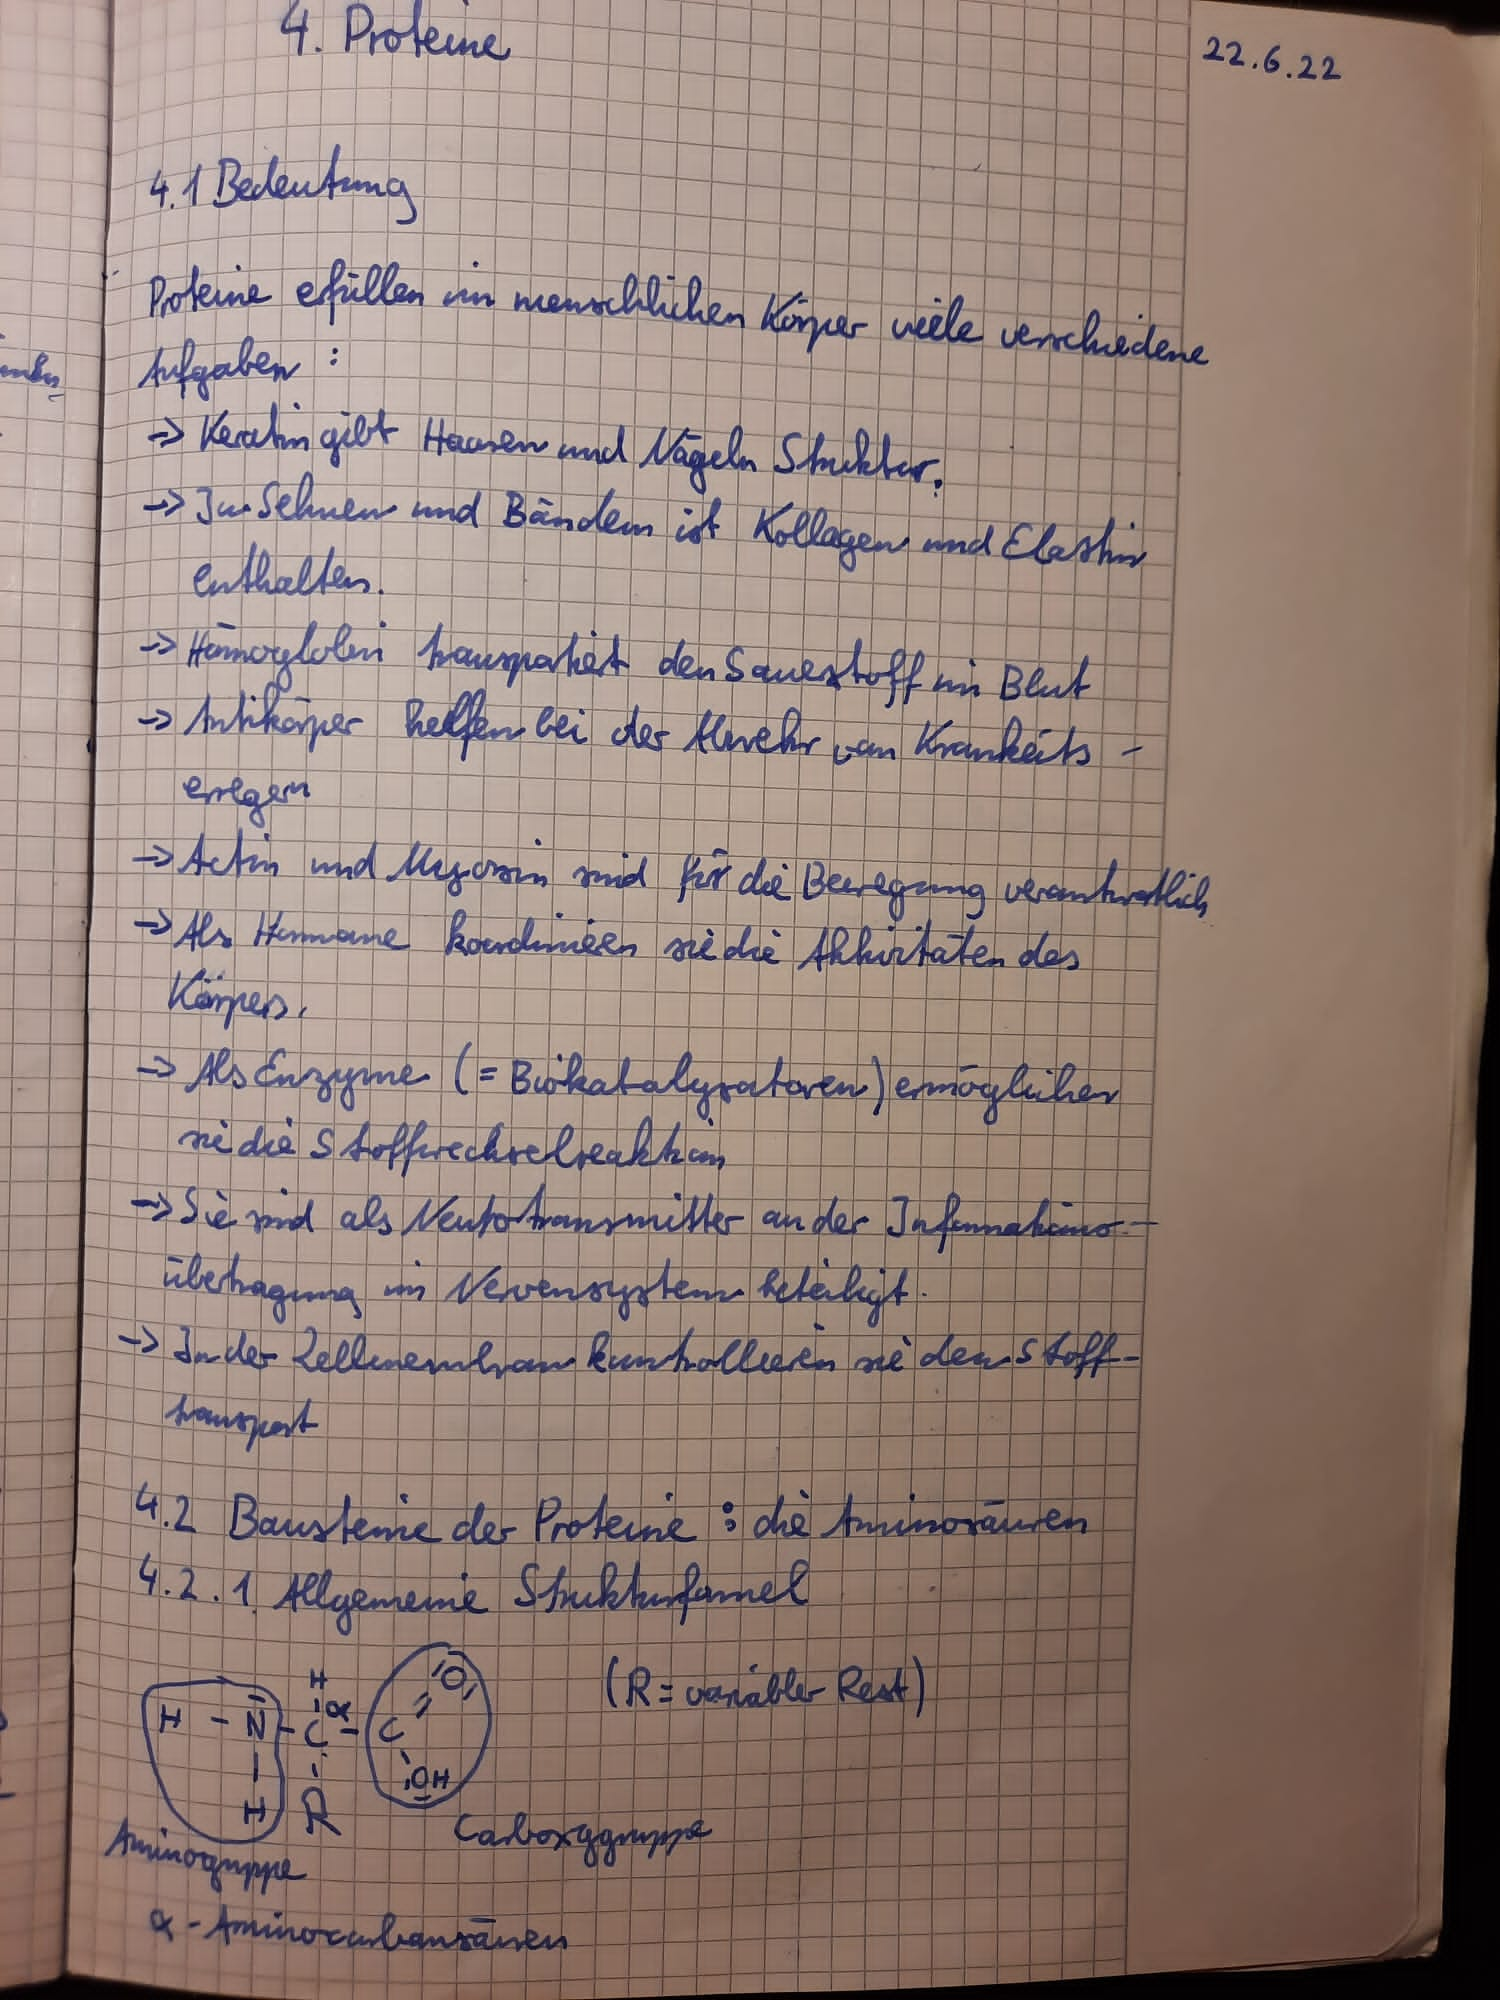 4. Proteine
22.6.22
4.1 Bedeutung
Proteine erfüllen im menschlichen Körper viele verschiedene
Aufgaben :
-> Keratin gibt Haaren und Nägeln Struktur.
-> In Sehnen und Bändern ist Kollagen und Elastin
enthalten.
-> Hämoglobin transportiert den Sauerstoff im Blut
-> Antikörper helfen bei der Abwehr von Krankeits -
erregern
-> Actin und Myosin sind für die Bewegung verantwortlich
-> Als Hormone koordinieren sie die Aktivitäten des
Körpers.
-> Als Enzyme (= Biokatalysatoren) ermöglichen
sie die Stoffwechselreaktion
-> Sie sind als Neurotransmitter an der Informations-
übertragung im Nervensystem beteiligt.
-> In der Zellmembran kontrollieren sie den Stoff-
transport
4.2 Bausteine der Proteine : die Aminosäuren
4.2.1 Allgemeine Strukturformel
H O
(R = variabler Rest)
H - N - C α - C
H R OH
Carboxygruppe
Aminogruppe
α - Aminocarbonsäuren